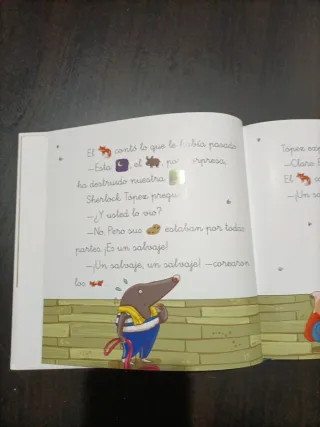 El contó lo que le había pasado.
—Esta , el , por sorpresa,
ha destruido nuestra
Sherlock Tópez pregu
—¿Y usted lo vio?
—No. Pero sus estaban por todas
partes. ¡Es un salvaje!
—¡Un salvaje, un salvaje! —corearon
los
Tópez
—Claro
El
—¡Un